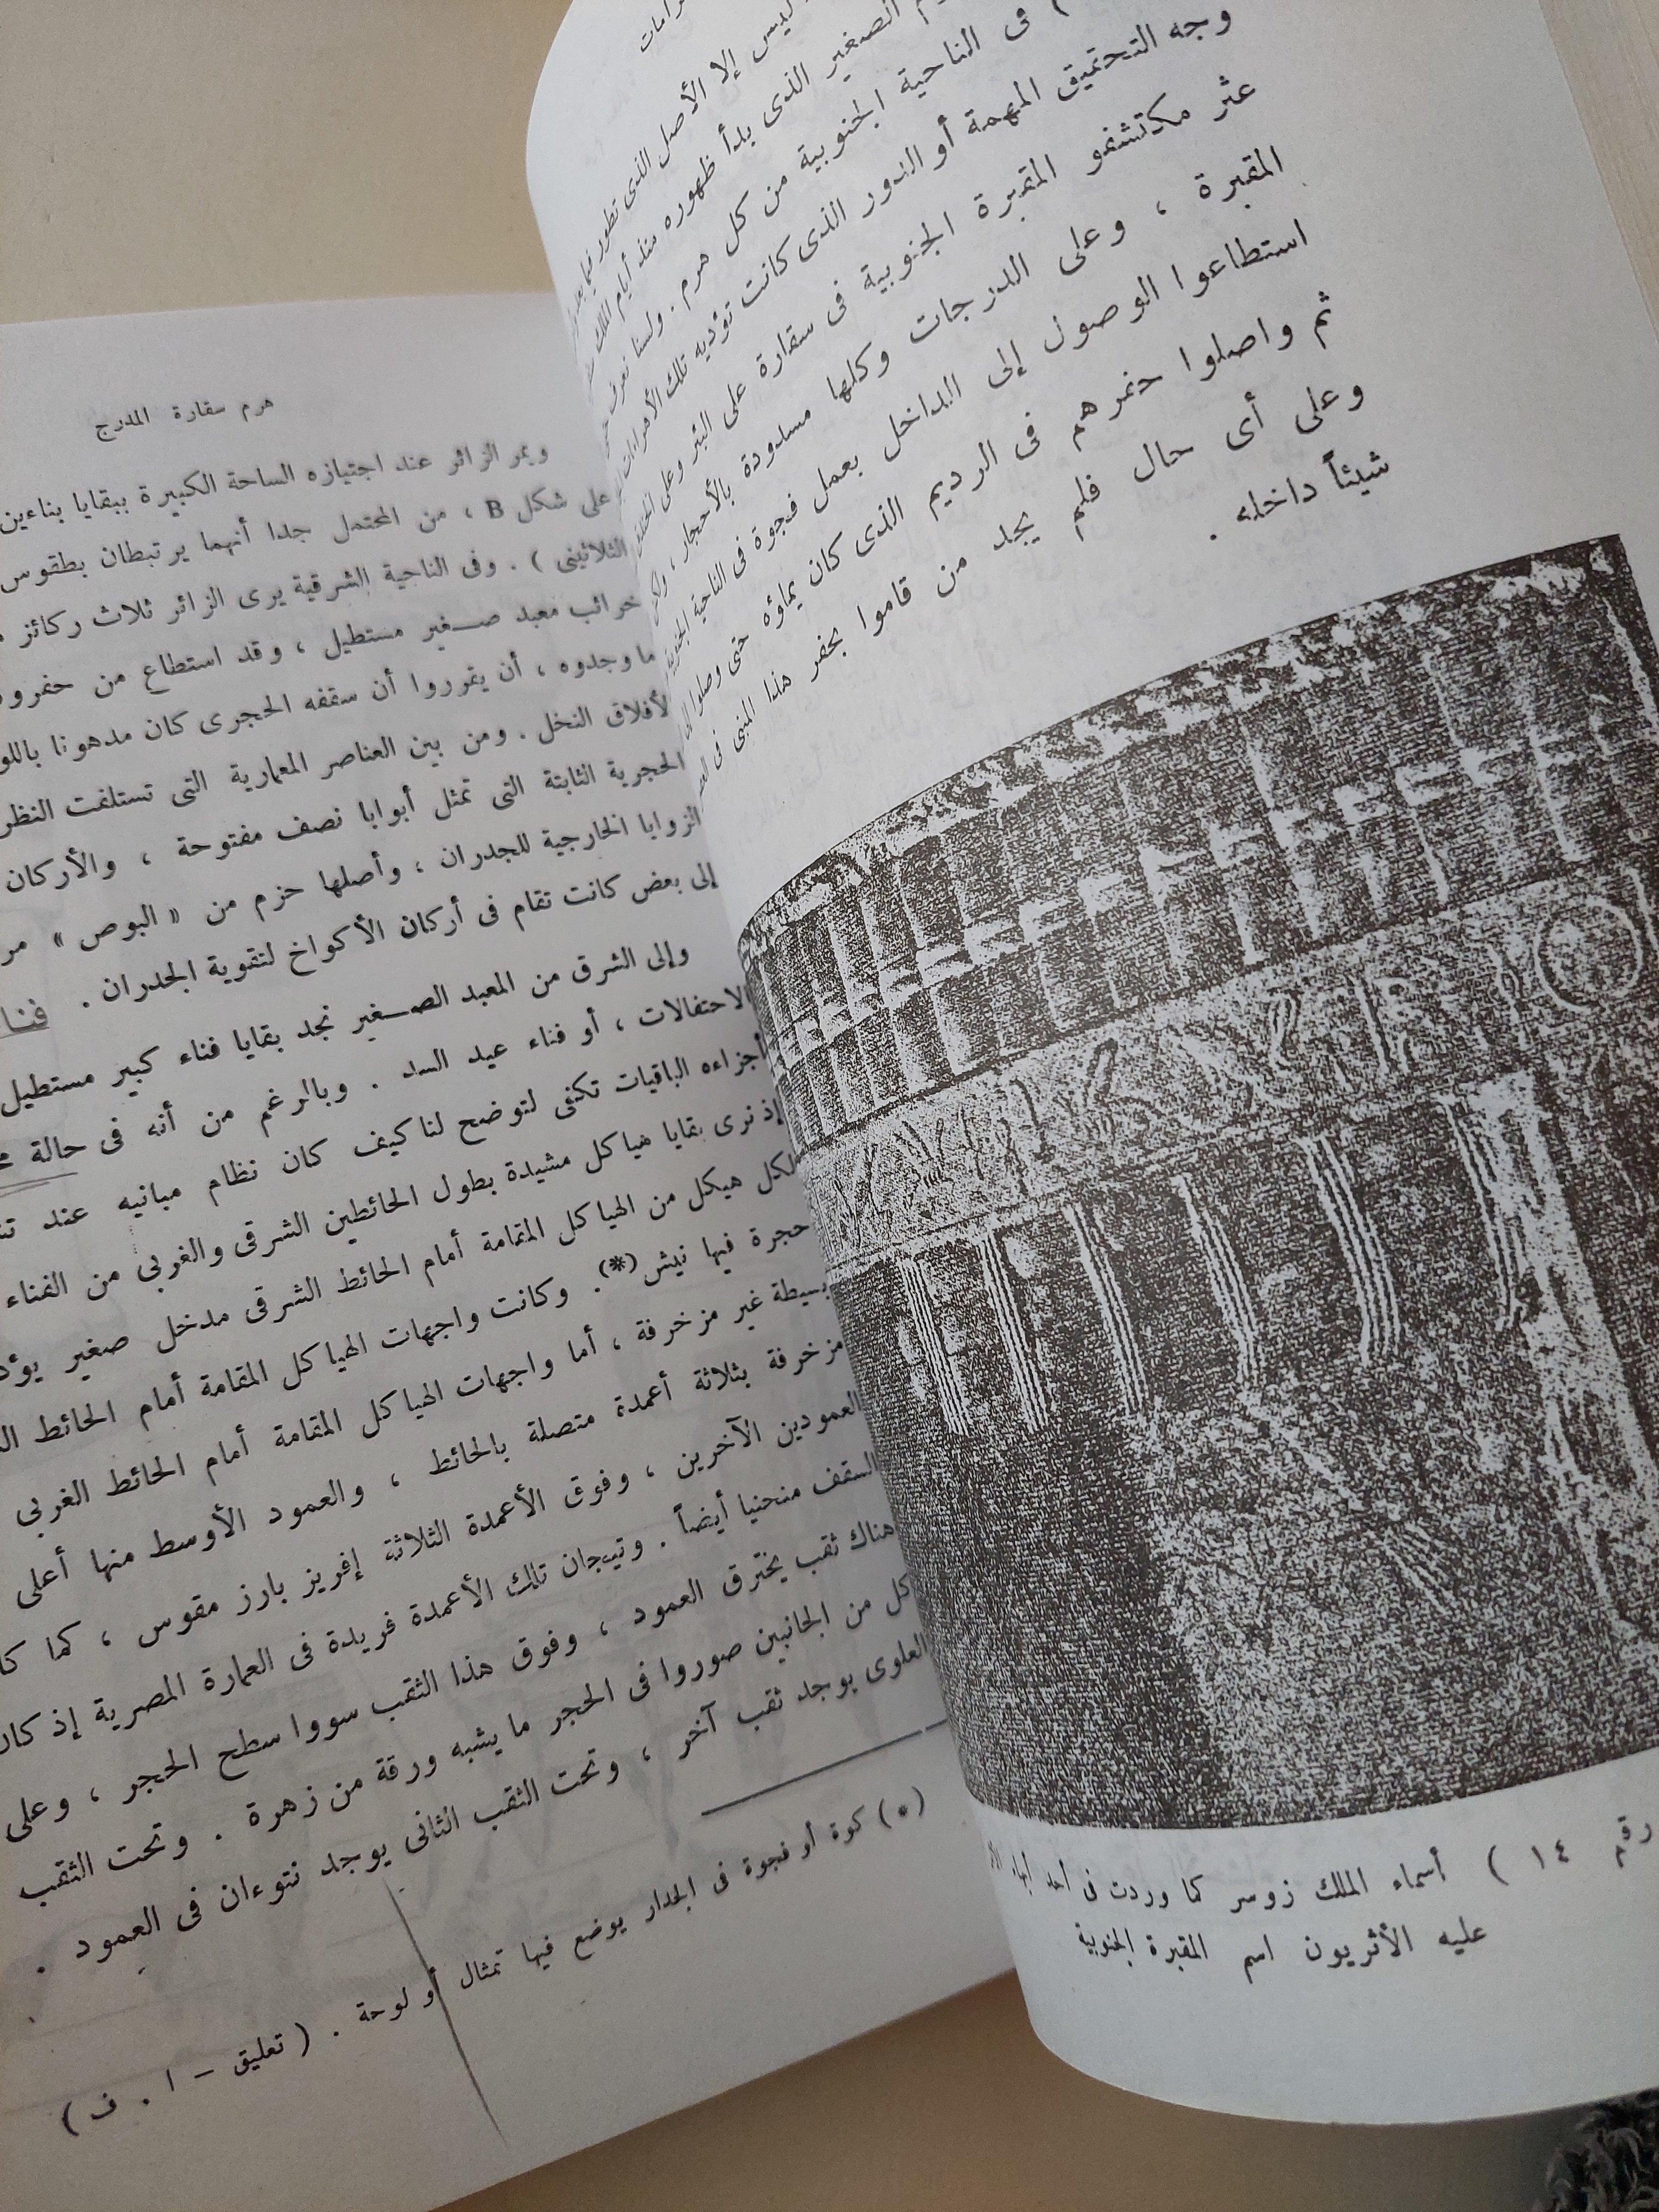 هرم سقارة المدرج
ويمر الزائر عند اجتيازه الساحة الكبيرة ببقايا بناءين
على شكل B ، من المحتمل جدا أنهما يرتبطان بطقوس
الثلاثينى ) . وفى الناحية الشرقية يرى الزائر ثلاث ركائز
خرائب معبد صغير مستطيل ، وقد استطاع من حفروه
ما وجدوه ، أن يقرروا أن سقفه الحجرى كان مدهونا باللو
لأفلاق النخل . ومن بين العناصر المعمارية التى تستلفت النظر
الحجرية الثابتة التى تمثل أبوابا نصف مفتوحة ، والأركان
الزوايا الخارجية للجدران ، وأصلها حزم من « البوص » مر
إلى بعض كانت تقام فى أركان الأكواخ لتقوية الجدران .
فنا
وإلى الشرق من المعبد الصغير نجد بقايا فناء كبير مستطيل
الاحتفالات ، أو فناء عيد السد . وبالرغم من أنه فى حالة
أجزاءه الباقيات تكفى لتوضح لنا كيف كان نظام مبانيه عند
إذ نرى بقايا هياكل مشيدة بطول الحائطين الشرقى والغربى من الفناء
لكل هيكل من الهياكل المقامة أمام الحائط الشرقى مدخل صغير يؤد
حجرة فيها نيش (*). وكانت واجهات الهياكل المقامة أمام الحائط
بسيطة غير مزخرفة ، أما واجهات الهياكل المقامة أمام الحائط الغربى
مزخرفة بثلاثة أعمدة متصلة بالحائط ، والعمود الأوسط منها أعلى
العمودين الآخرين ، وفوق الأعمدة الثلاثة إفريز بارز مقوس ، كما كا
السقف منحنيا أيضاً . وتيجان تلك الأعمدة فريدة فى العمارة المصرية إذ كان
هناك ثقب يخترق العمود ، وفوق هذا الثقب سووا سطح الحجر ، وعلى
كل من الجانبين صوروا فى الحجر ما يشبه ورقة من زهرة . وتحت الثقب
العلوى يوجد ثقب آخر ، وتحت الثقب الثانى يوجد نتوءان فى العمود .
(*) كوة أو فجوة فى الجدار يوضع فيها تمثال أو لوحة . ( تعليق – ا . ف )
ليس إلا الأصل الذى تطور فيما بعد
الصغير الذى بدأ ظهوره منذ أيام الملك
فى الناحية الجنوبية من كل هرم . ولسنا نعرف
وجه التحقيق المهمة أو الدور الذى كانت تؤديه تلك الأهرامات
عثر مكتشفو المقبرة الجنوبية فى سقارة على البئر وعلى
المقبرة ، وعلى الدرجات وكلها مسدودة بالأحجار ،
استطاعوا الوصول إلى الداخل بعمل فجوة فى الناحية
ثم واصلوا حفرهم فى الرديم الذى كان يملؤه حتى وصلوا
وعلى أى حال فلم يجد من قاموا بحفر هذا المبنى
شيئاً داخله .
رقم ١٤ ) أسماء الملك زوسر كما وردت فى أحد
عليه الأثريون اسم المقبرة الجنوبية